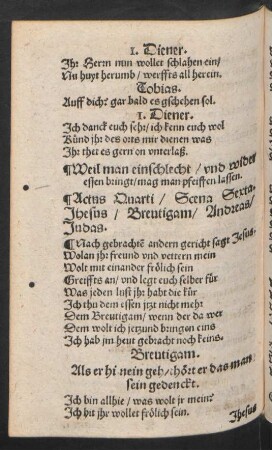 1. Diener.
Ihr Herrn nun wollet schlahen ein/
Nu huyt herumb/ werffts all herein.
Tobias.
Auff dich? gar bald es gschehen sol.
1. Diener.
Ich danck euch sehr/ ich kenn euch wol
Künd jhr des orts mir dienen was
Ihr thet es gern on vnterlaß.
¶Weil man einschlecht/ vnd wider
essen bringt/ mag man pfeiffen lassen.
¶Actus Quarti/ Scena Sexta.
Ihesus/ Breutigam/ Andreas/
Judas.
¶Nach gebrachtem andern gericht sagt Jesus.
Wolan jhr freund vnd vettern mein
Wolt mit einander frölich sein
Greiffts an/ vnd legt euch selber für
Was jeden lust jhr habt die kür
Ich thu dem essen jtzt nicht mehr
Dem Breutigam/ wenn der da wer
Dem wolt ich jetzund bringen eins
Ich hab jm heut gebracht noch keins.
Breutigam.
Als er hi nein geh/ hört er das man
sein gedenckt.
Ich bin allhie/ was wolt jr mein?
Ich bit jhr wollet frölich sein.
Ihesus